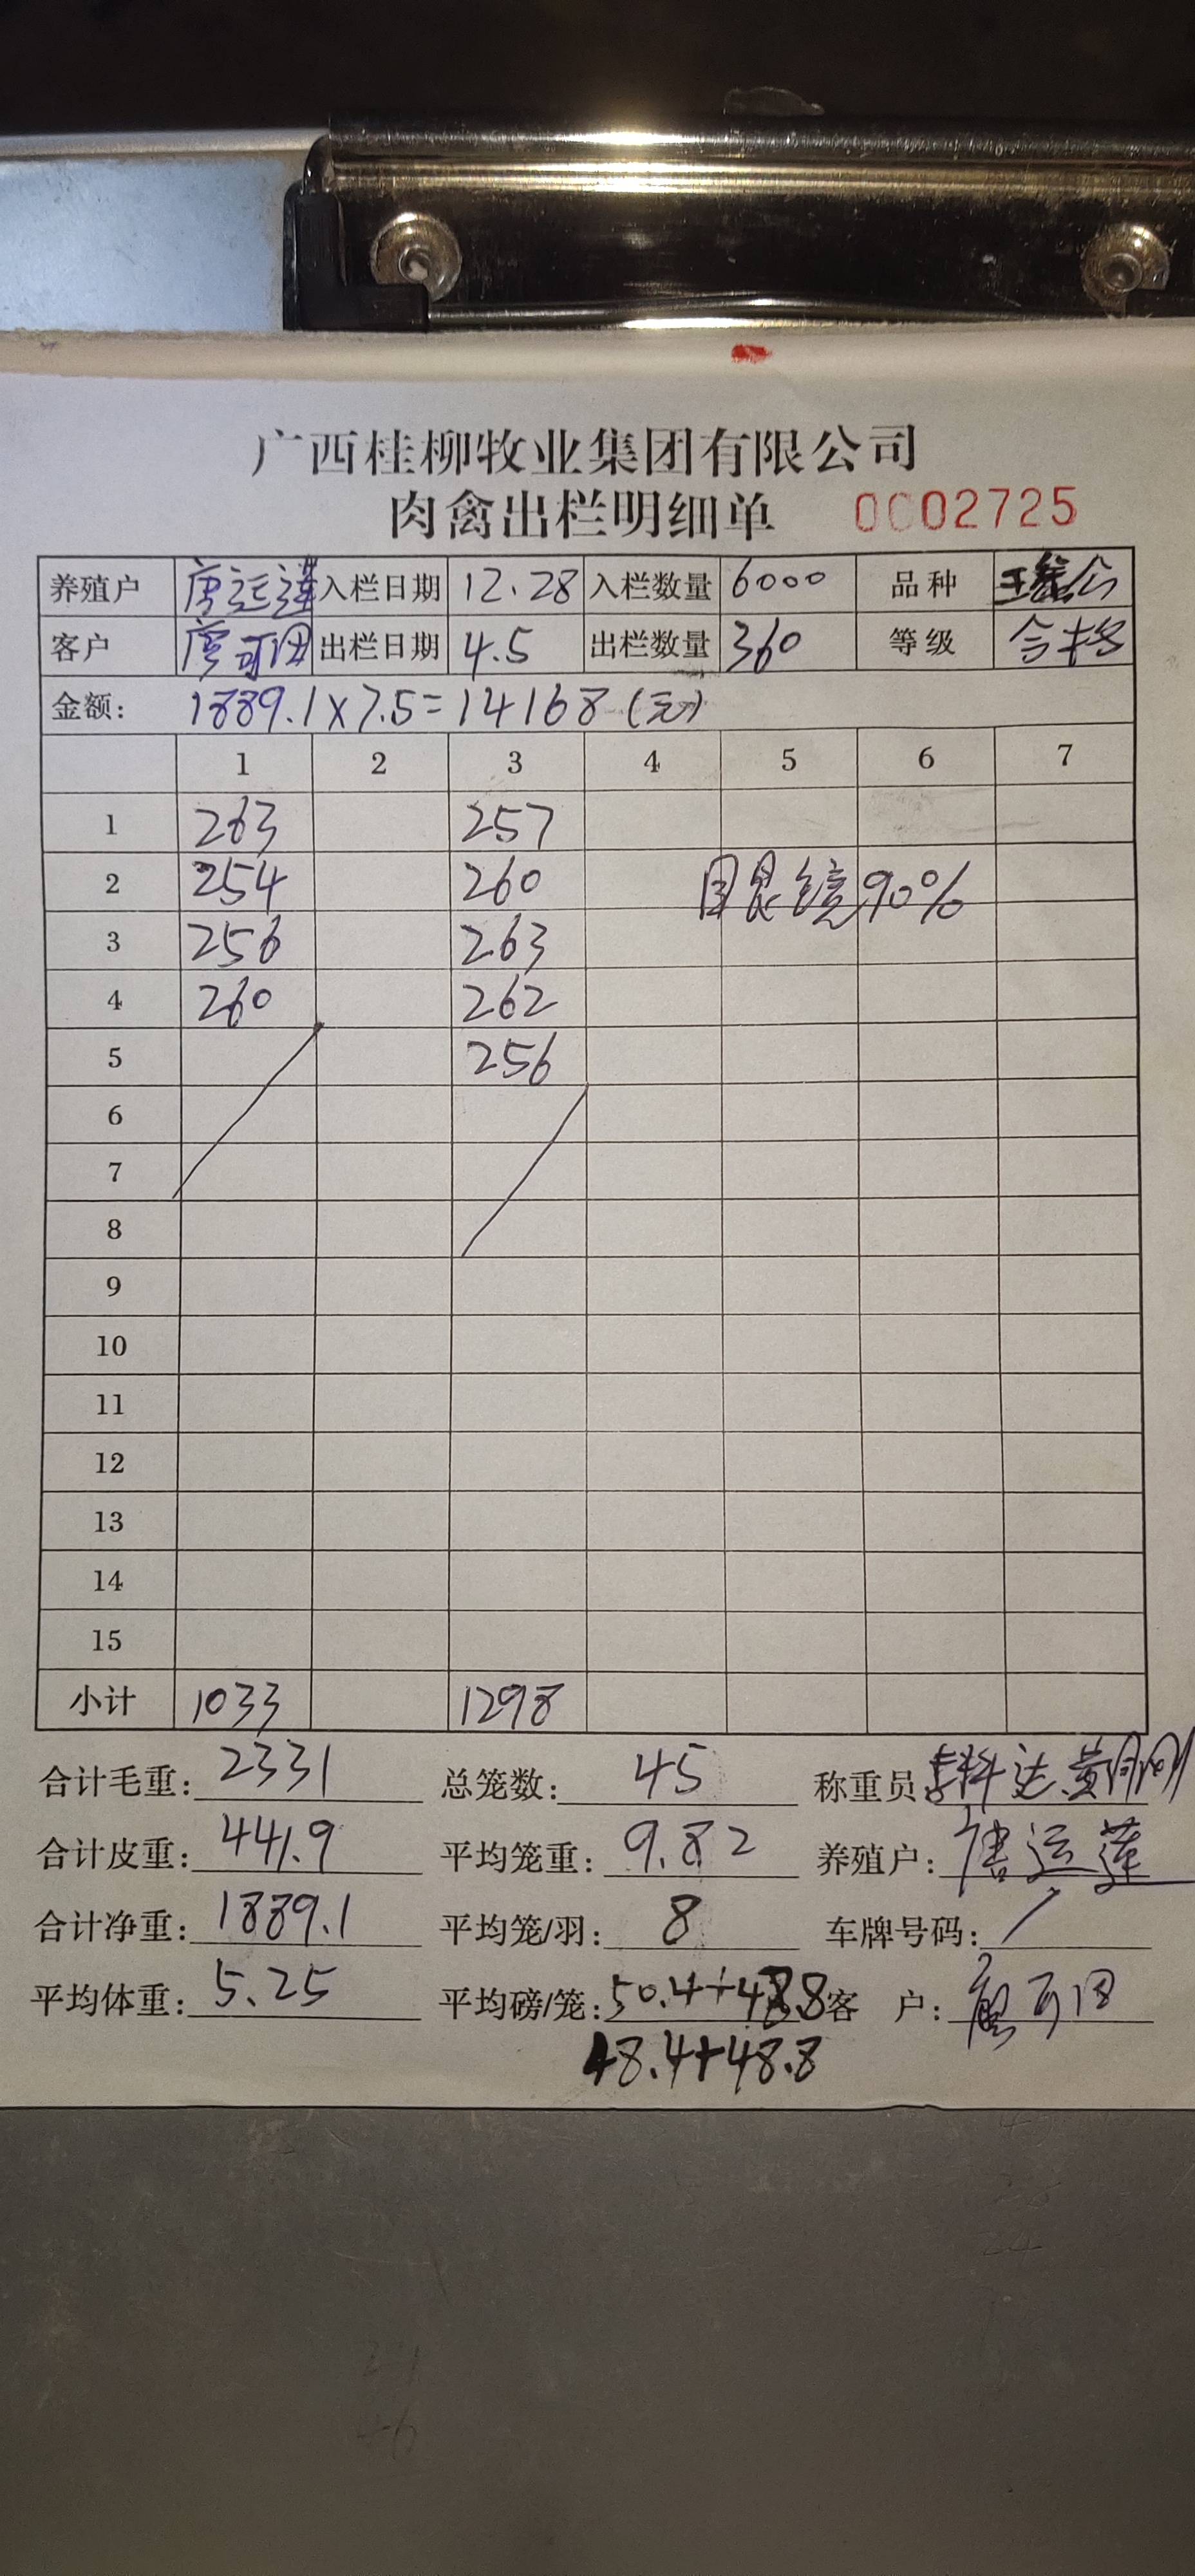 广西桂柳牧业集团有限公司
肉禽出栏明细单 0002725
养殖户 唐运莲 入栏日期 12.28 入栏数量 6000 品种
客户 出栏日期 4.5 出栏数量 360 等级 合格
金额: 1889.1×7.5=14168(元)
1 2 3 4 5 6 7
1 263 257
2 254 260 戴眼镜90%
3 256 263
4 260 262
5 256
6
7
8
9
10
11
12
13
14
15
小计 1033 1298
合计毛重: 2331 总笼数: 45 称重员
合计皮重: 441.9 平均笼重: 9.82 养殖户: 唐运莲
合计净重: 1889.1 平均笼/羽: 8 车牌号码: /
平均体重: 5.25 平均磅/笼: 50.4+48.8 客 户:
48.4+48.8